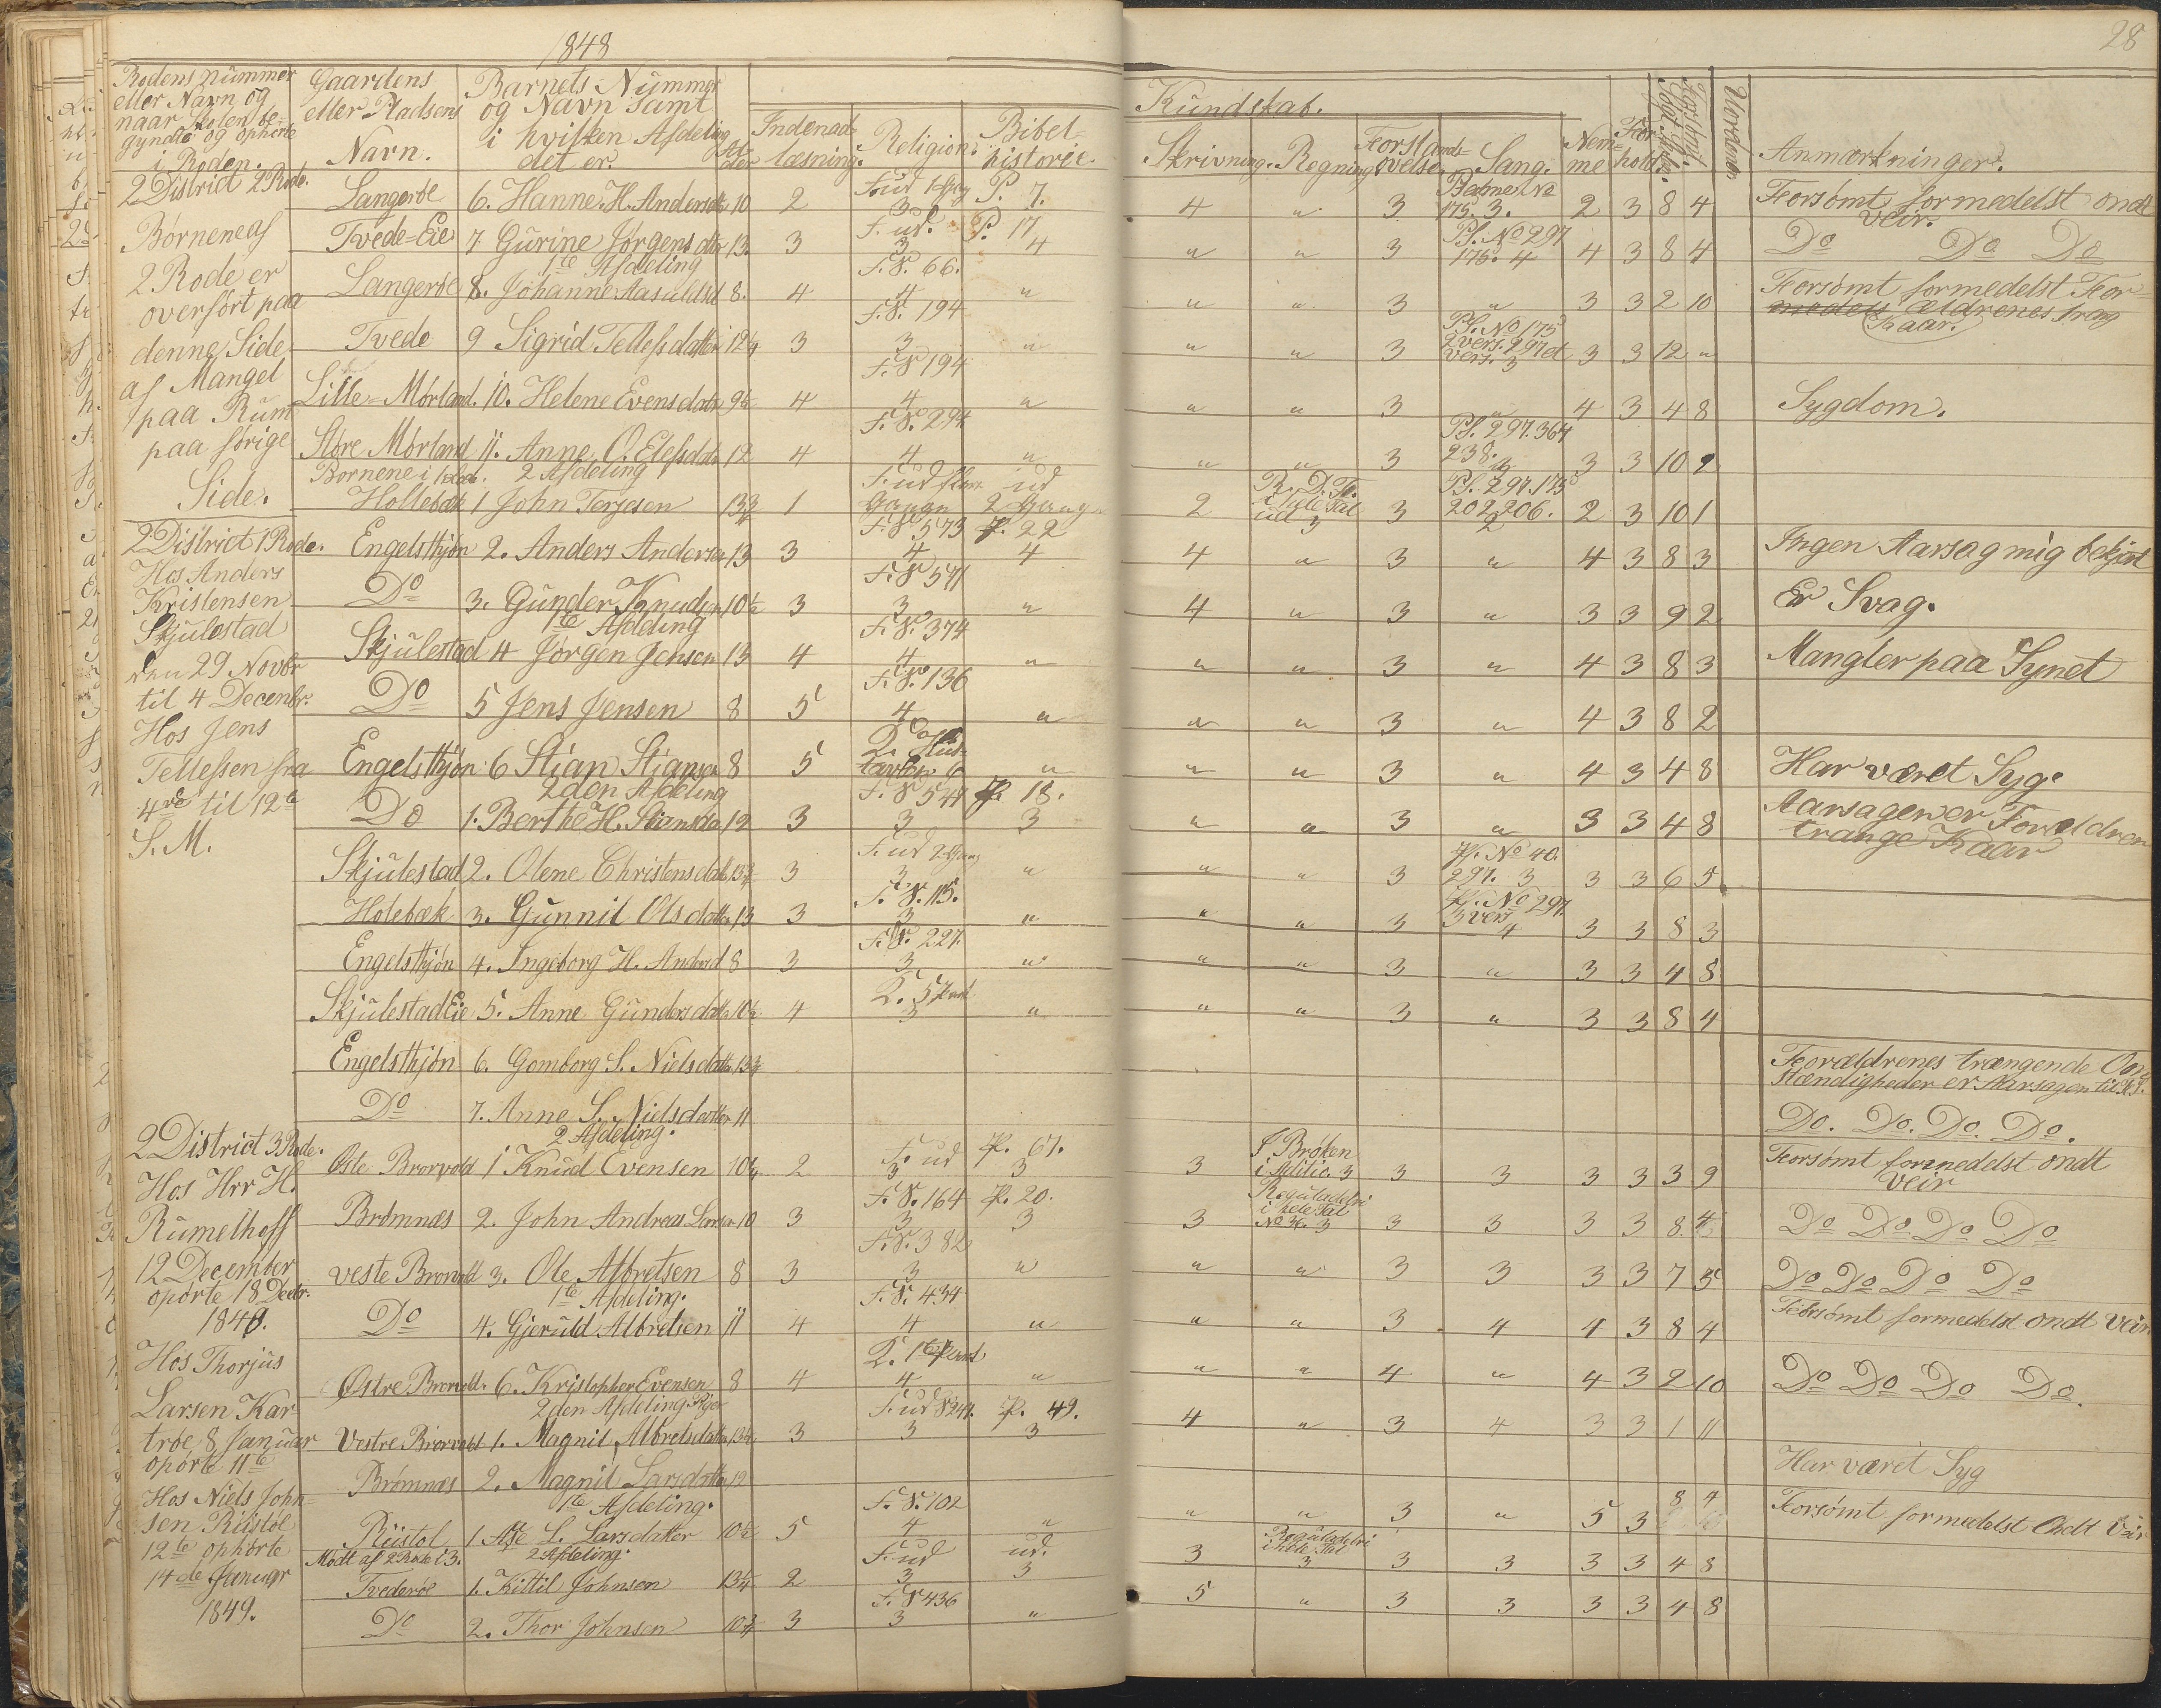 1848
28
Rodens nummer eller Navn og naar Skolen begyndte og ophørte i Roden.
Gaardens eller Pladsens Navn.
Barnets Nummer og Navn samt i hvilken Afdeling det er.
Alder
Indenad læsning.
Religion.
Bibel-historie
Kundskab.
Skrivning.
Regning
Forstands-øvelse.
Sang.
Nemme
Forhold
Søgt Skole.
Forsømt
Vurderes
Anmærkninger.
2 District 2 Rode.
Børnene af
2 Rode er
overført paa
denne Side
af Mangel
paa Rum
paa førige
Side.
Langerøe 6. Hanne H. Andersdtr 10 2 F. ud 1 Gang 3 P. 7. 4 " 3 Psalme No 175. 3. 2 3 8 4 Forsømt formedelst ondt Veir.
Tvede-Eie 7 Gurine Jørgensdtr 13. 3 F. ud. 3 P. 17 4 " " 3 Ps. No 297 175. 4 4 3 8 4 Do Do Do
1te Afdeling
Langerøe 8. Johanne 8. 4 F. S. 66. 4 " " " 3 " 3 3 2 10 Forsømt formedelst Forældrenes trang Kaar.
Tvede 9 Sigrid Tellefsdatter 12 1/4 3 F. S. 194 3 " " " 3 Ps. No 175 2 vers. 297 et vers. 3 3 3 12 "
Lille-Mørland. 10. Helene Evensdatr 9 1/2 4 F. S 194 4 " " " 3 " 4 3 4 8 Sygdom.
Støre Mørland 11. Anne O. Elefsdatr 12 4 F. S. 294 4 " " " 3 Ps. 297. 364 238. 3 3 3 10 2
Børnene i 2 Afdeling
Hollebæk 1 John Terjesen 13 3/4 1 F. ud flere Gange ud 2 Gange 2 R. D. Tr. i hele Tal ud 3 3 Ps. 297. 175 202 206. 2 2 3 10 1
2 District 1 Rode.
Hos Anders
Kristensen
Skjulestad
den 29 Novbr
til 4 Decenbr.
Hos Jens
Tellefsen fra
4de til 12te
S. M.
Engelsthjøn 2. Anders Andersen 13 3 F. S 573 4 P. 22 4 4 " 3 " 4 3 8 3 Ingen Aarsag mig bekjent
Do 3. Gunder Knudsen 10 1/2 3 F. S 571 3 " 4 " 3 " 3 3 9 2 Er Svag.
1te Afdeling
Skjulestad 4 Jørgen Jensen 13 4 F. S. 374 4 " " " 3 " 4 3 8 3 Mangler paa Synet
Do 5 Jens Jensen 8 5 F. S. 136 4 " " " 3 " 4 3 8 2
Engelsthjøn 6 Stian Stiansen 8 5 " " " 3 " 4 3 4 8 Har været Syg.
2den Afdeling
Do 1. Berthe H. Stiensda 12 3 F. S 544 3 P. 18. 3 " " 3 " 3 3 4 8 Aarsagen er Forældren trange Kaar
Skjulestad 2. Olene Christensdatr 13 3/4 3 F. ud 2 Gang 3 " " " 3 Ps. No 40. 297. 3 3 3 6 5
Holebæk 3. Gunnil Olsdatter 13 3 F. S. 115. 3 " " " 3 Ps. No 297. 3 vers 4 3 3 8 3
Engelsthjøn 4. Ingeborg H. Andersd 8 3 F. S. 227. 3 " " " 3 " 3 3 4 8
Skjulestad Eie 5. Anne Gundersdatter 10 1/2 4 3 " " " 3 " 3 3 8 4
Engelsthjøn 6. Gomborg S. Nielsdatter 13 3/4 Forældrenes trængende Omstændigheder er Aarsagen
Do 7. Anne S. Nielsdatter 11 Do. Do. Do. Do.
2 District 3 Rode.
Hos Hrr H.
Rumelhoff
12 December
oporte 18 Decbr.
1848.
Hos Thorjus
Larsen Kar-
trøe 8 Januar
oporte 11te
Hos Niels John-
sen Riistøl
12te ophørte
14de Januar
1849.
2 Afdeling.
Øste Brorvold 1 Knud Evensen 10 1/4 2 F. ud 3 P. 67. 3 3 I Brøken i Aditio. 3 3 3 3 3 3 9 Forsømt formedelst ondt Veir
Brømnæs 2. John Andreas Larsen 10 3 F. S. 164 3 P. 20. 3 3 Reguladetri i hele Tal 3 3 3 3 3 8. 4 Do Do Do Do
veste Brorvold 3. Ole Albretsen 8 3 F. S. 382 3 " " " 3 3 3 3 7 5 Do Do Do Do
1te Afdeling.
Do 4. Gjeruld Albretsen 11 4 F. S. 434 4 " " " 3 4 4 3 8 4 Forsømt formedelst ondt Veir
Østre Brorvold. 6. Kristopher Evensen 8 4 4 " " " 4 " 4 3 2 10 Do Do Do Do.
2den Afdeling Piger
Vestre Brorvold 1. Magnil Albretsdatter 13 1/2 3 F. ud S 244. 3 P. 49. 3 4 " 3 4 3 3 1 11
Brømnæs 2. Magnil Larsdatter 12 Har været Syg
1te Afdeling.
Riistøl 1 Ase L. Larsdatter 10 1/2 5 F. S. 102 4 " " " 3 " 5 3 8 4 Forsømt formedelst Ondt Veir
Mødt af 2 Rode i 3. 2 Afdeling.
Tvederøe 1. Kittil Johnsen 13 1/4 2 F. ud 3 ud. 3 3 Reguladetri i hele Tal 3 3 3 3 3 4 8
Do 2. Thor Johnsen 10 3/4 3 F. S 436 3 " 5 " 3 3 3 3 4 8